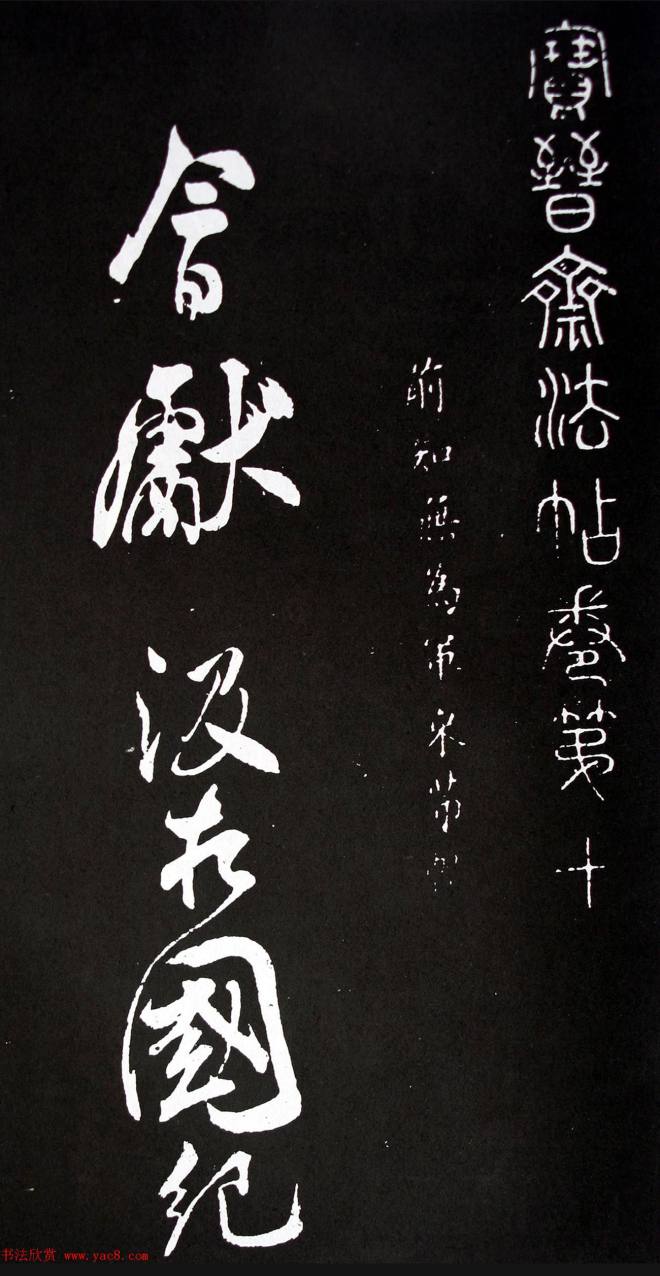 寶晉齋法帖卷第十
前知無為軍米芾
會獻汲國紀
書法欣赏 www.yac8.com